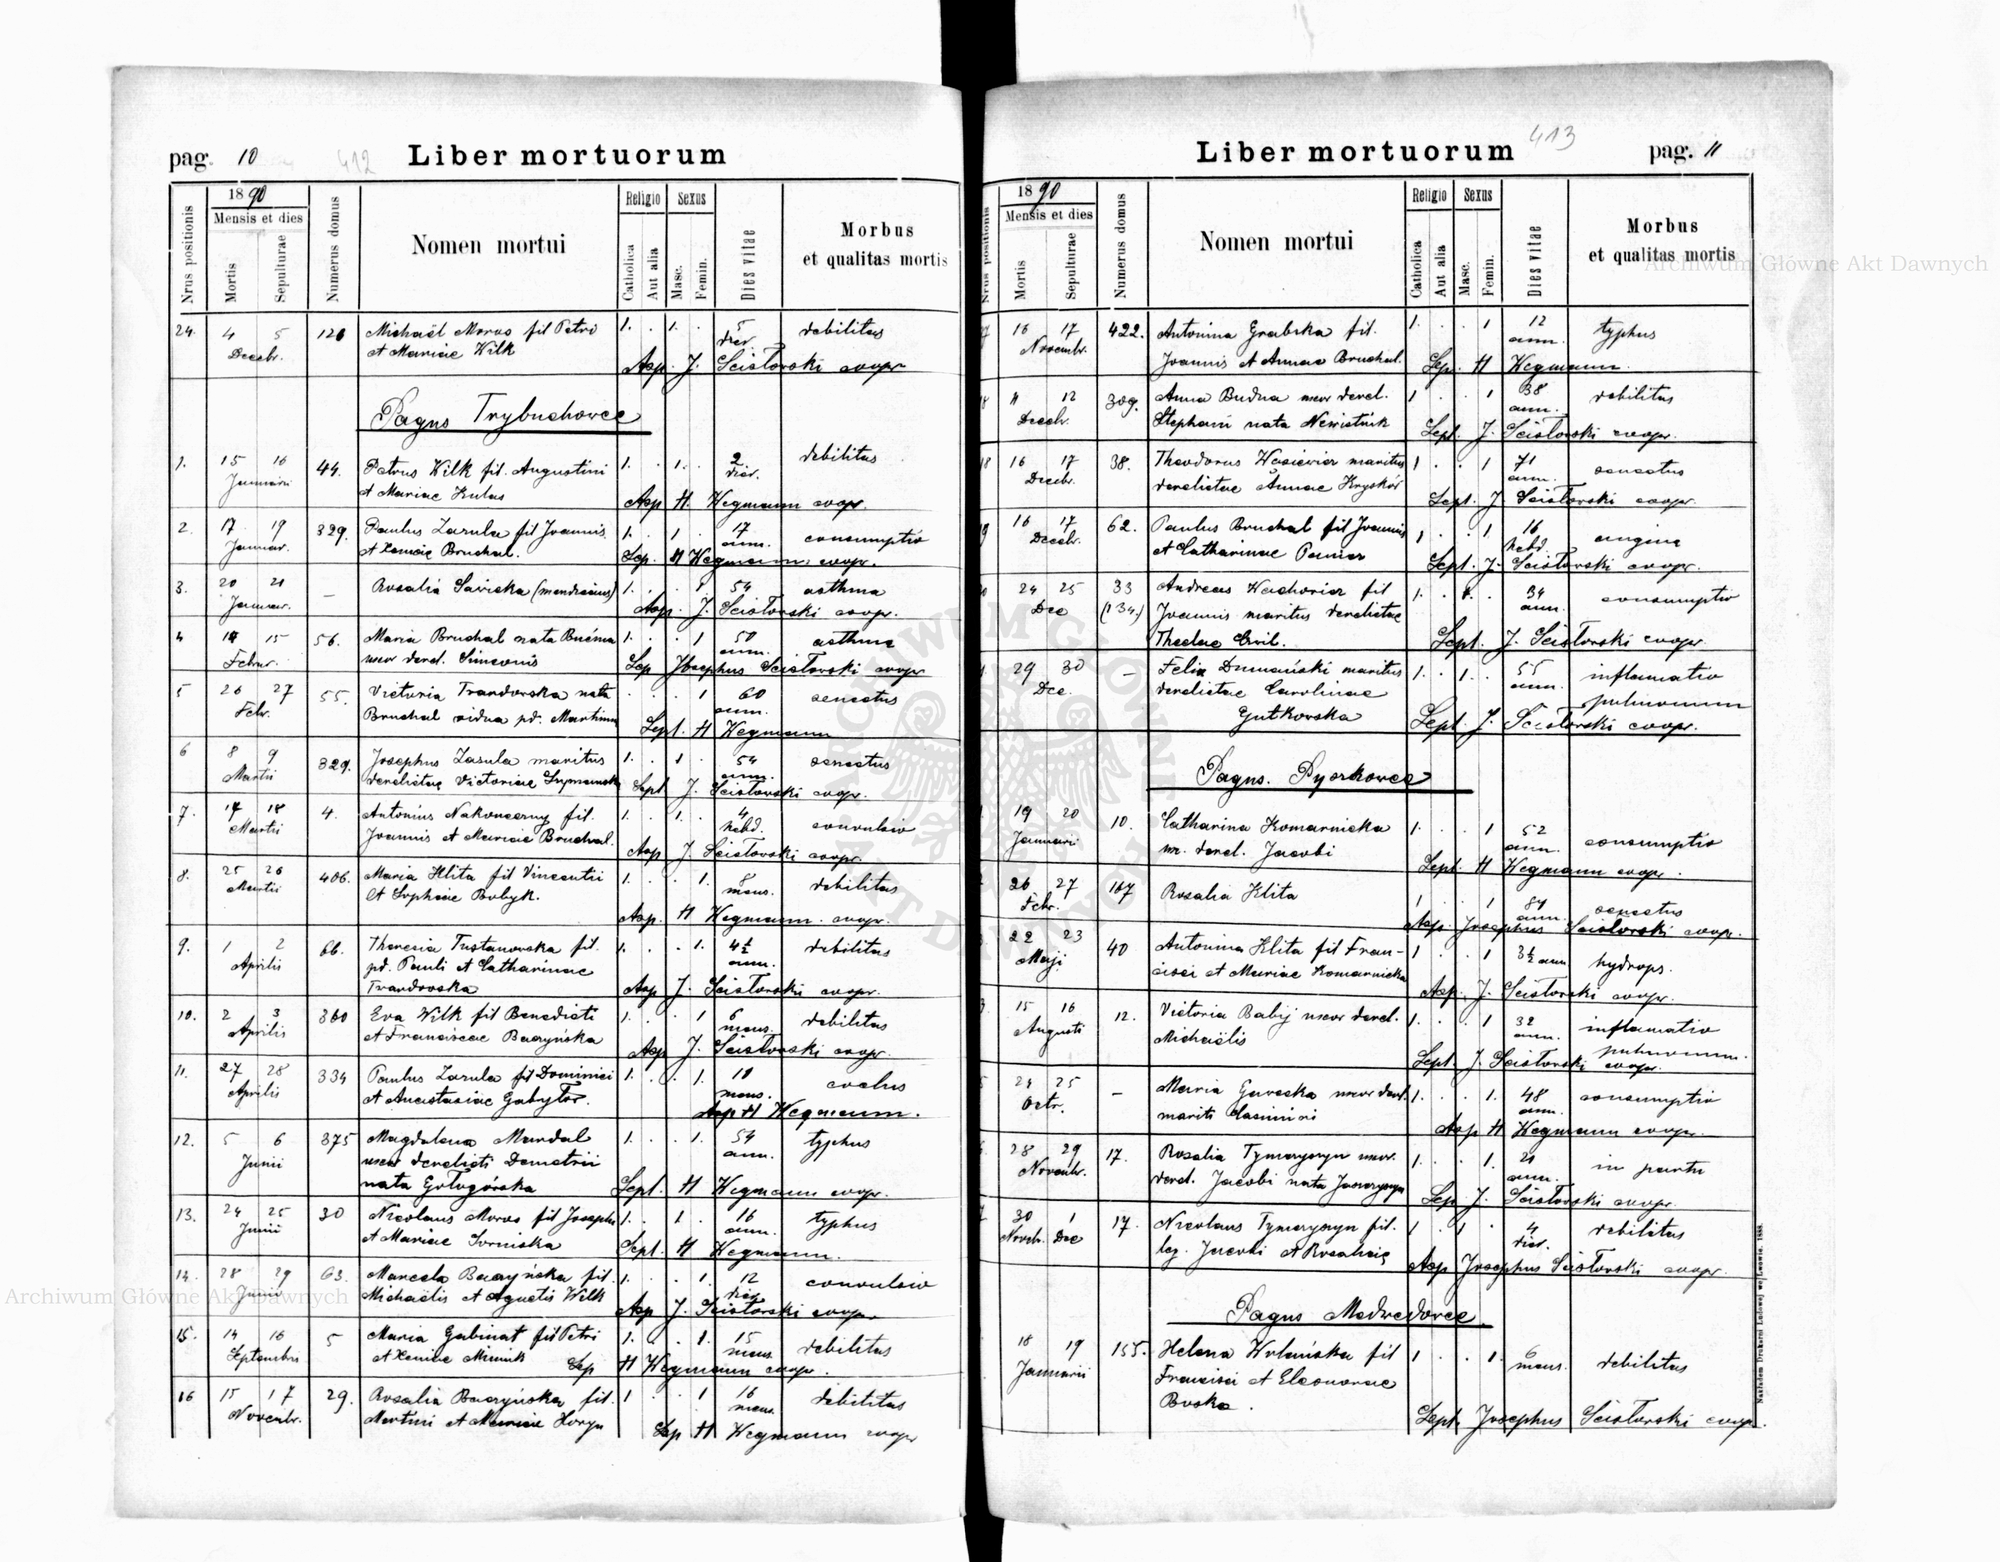 pag. 10 412 Liber mortuorum
Nrus positionis
1890
Mensis et dies
Mortis
Sepulturae
Numerus domus
Nomen mortui
Religio
Catholica
Aut alia
Sexus
Masc.
Femin.
Dies vitae
Morbus
et qualitas mortis
24. 4 5 126 Michaël Moros fil Petri 1. . 1. . 5 debilitas
Decebr. et Mariae Wilk dier.
Asp. J. Scisłowski coopr
Pagus Trybuchowce
1. 15 16 44. Petrus Wilk fil. Augustini 1. . 1. 2 debilitas
Januarii et Mariae Kulas dier.
Asp H. Wegmann coopr.
2. 17 19 329. Paulus Zazula fil Joannis 1. . 1 . 17 consumptio
Januar. et Xeniae Bruchal. ann.
Sep. H Wegmann coopr.
3. 20 21 — Rosalia Sawicka 1. . . 1 54 asthma
Januar. Asp. J. Scisłowski coopr.
4 14 15 56. Maria Bruchal nata 1. . . 1 50 asthma
Februar. uxor derel. Simeonis ann.
Sep Josephus Scisłowski coopr
5 26 27 55. Victoria Trandowska nata . . 1 60 senectus
Febr. Bruchal vidua pd. Martinum ann.
Sept. H Wegmann
6 8 9 329. Josephus Zazula maritus 1. . 1 . 54 senectus
Martii derelictae Victoriae Szymańska ann.
Sept J. Scisłowski coopr.
7. 17 18 4. Antonius Nakoneczny fil. 1. . 1. . 4 convulsio
Martii Joannis et Mariae Bruchal. hebd.
Asp J. Scisłowski coopr.
8. 25 26 406. Maria Klita fil Vincentii 1. . . 1. 8 debilitas
Martii et Sophiae Bobyk. mens.
Asp. H Wegmann. coopr.
9. 1 2 66. Theresia Tustanowska fil. 1. . . 1 4½ debilitas
Aprilis pd. Pauli et Catharinae ann.
Trandowska Asp J. Scisłowski coopr.
10. 2 3 360 Eva Wilk fil Benedicti 1. . . 1 6 debilitas
Aprilis et Franciscae Baczyńska mens.
Asp J. Scisłowski coopr.
11. 27 28 334 Paulus Zazula fil Dominici 1. . . 1. 10
Aprilis et Anastasiae mens.
Asp H Wegmann.
12. 5 6 375 Magdalena Mandal 1. . . 1. 54 typhus
Junii uxor derelicti Demetrii ann.
nata Gołogórska Sept. H Wegmann coopr.
13. 24 25 30 Nicolaus Moros fil Josephi 1. . 1 . 16 typhus
Junii et Mariae ann.
Sept. H Wegmann.
14. 28 29 63. Marcela Baczyńska fil. 1. . . 1. 12 convulsio
Junii Michaëlis et Agnetis Wilk dier.
Asp J. Scisłowski coopr.
15. 14 16 5 Maria Gabinat fil Petri 1. . . 1. 15 debilitas
Septembris et Xeniae mens.
Sep H Wegmann coopr.
16 15 17 29. Rosalia Baczyńska fil. 1 . . 1 16 debilitas
Novembr. Martini et Mariae mens.
Sep H Wegmann coopr
Liber mortuorum 413 pag. 11
Nrus positionis
1890
Mensis et dies
Mortis
Sepulturae
Numerus domus
Nomen mortui
Religio
Catholica
Aut alia
Sexus
Masc.
Femin.
Dies vitae
Morbus
et qualitas mortis
16 17 422. Antonina Grabska fil. 1. . . 1 12 typhus
Novembr. Joannis et Annae Bruchal. ann.
Sep. H Wegmann.
11 12 309. Anna Budna uxor derel. 1 . . 1 38 debilitas
Decebr. Stephani nata ann.
Sept. J. Scisłowski coopr.
18 16 17 38. Theodorus maritus 1 . . 1 71 senectus
Decebr. derelictae Annae ann.
Sept. J. Scisłowski coopr.
16 17 62. Paulus Bruchal fil Joannis 1 . . 1 16 angina
Decebr. et Catharinae hebd.
Sept. J. Scisłowski coopr.
24 25 33 Andreas Wachowicz fil 1. . 34 consumptio
Dec (134.) Joannis maritus derelictae ann.
Theclae Sept. J. Scisłowski coopr.
29 30 — Felix Dumański maritus 1. . 1. . 55 inflamatio
Dec. derelictae Carolinae ann. pulmonum
Gutkowska Sept J. Scisłowski coopr.
Pagus. Pyszkowce
19 20 10. Catharina Komarnicka 1. . . 1 52 consumptio
Januarii ux. derel. Jacobi ann.
Sept. H Wegmann coopr.
26 27 167 Rosalia Klita 1 . . 1 84 senectus
Febr. ann.
Asp. Josephus Scisłowski coopr.
22 23 40 Antonina Klita fil Fran- 1 . . 1 3½ ann hydrops.
Maji cisci et Mariae Komarnicka
Asp. J. Scisłowski coopr.
15 16 12. Victoria Babij uxor derel. 1. . . 1 32 inflamatio
Augusti Michaëlis ann. pulmonum.
Sept. J. Scisłowski coopr.
24 25 — Maria uxor derel. 1. . . 1. 48 consumptio
Octr. mariti Casimiri ann.
Asp H Wegmann coopr.
28 29 17. Rosalia Tymczyszyn uxor. 1. . . 1. 21 in partu
Novembr. derel. Jacobi nata ann.
Sep J. Scisłowski coopr.
30 1 17. Nicolaus Tymczyszyn fil. 1 . 1 . 4 debilitas
Novebr. Dec leg. Jacobi et Rosaliae dier.
Asp Josephus Scisłowski coopr.
Pagus Medwedowce
18 19 155. Helena Wolańska fil 1 . . 1. 6 debilitas
Januarii Francisci et Eleonorae mens.
Boska. Sept. Josephus Scisłowski coopr.
Nakładem Drukarni Ludowej we Lwowie. 1888.
Archiwum Główne Akt Dawnych
Archiwum Główne Akt Dawnych
ARCHIWUM GŁÓWNE AKT DAWNYCH